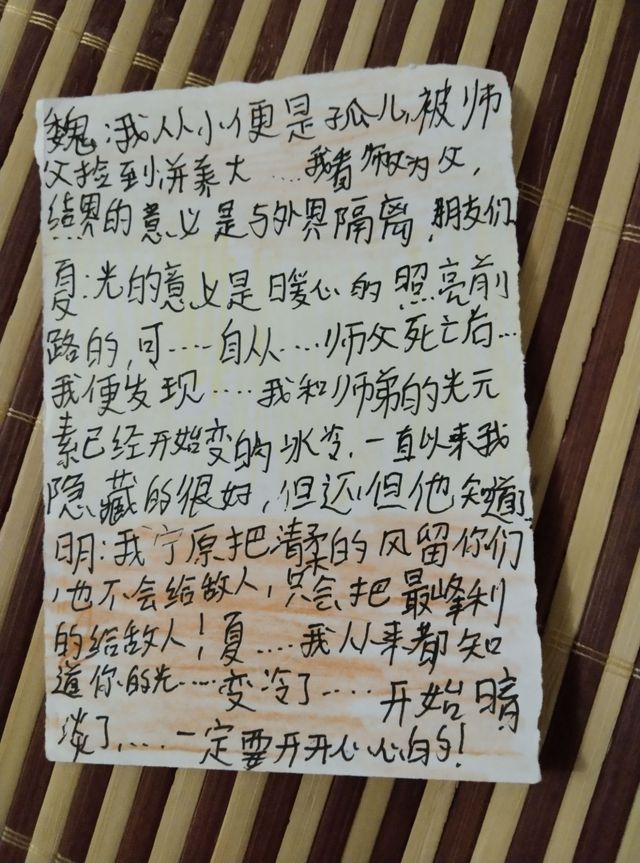 魏:我从小便是孤儿,被师
父捡到并养大....我看师父为父,
结界的意义是与外界隔离,朋友们
夏:光的意义是暖心的照亮前
路的,可....自从....师父死亡后...
我便发现....我和师弟的光元
素已经开始变的冰冷,一直以来我
隐藏的很好,但还但他知道了
明:我宁原把清柔的风留你们
,也不会给敌人,只会把最峰利
的给敌人!夏....我从来都知
道你的光....变冷了....开始暗
淡了,...一定要开开心心的!